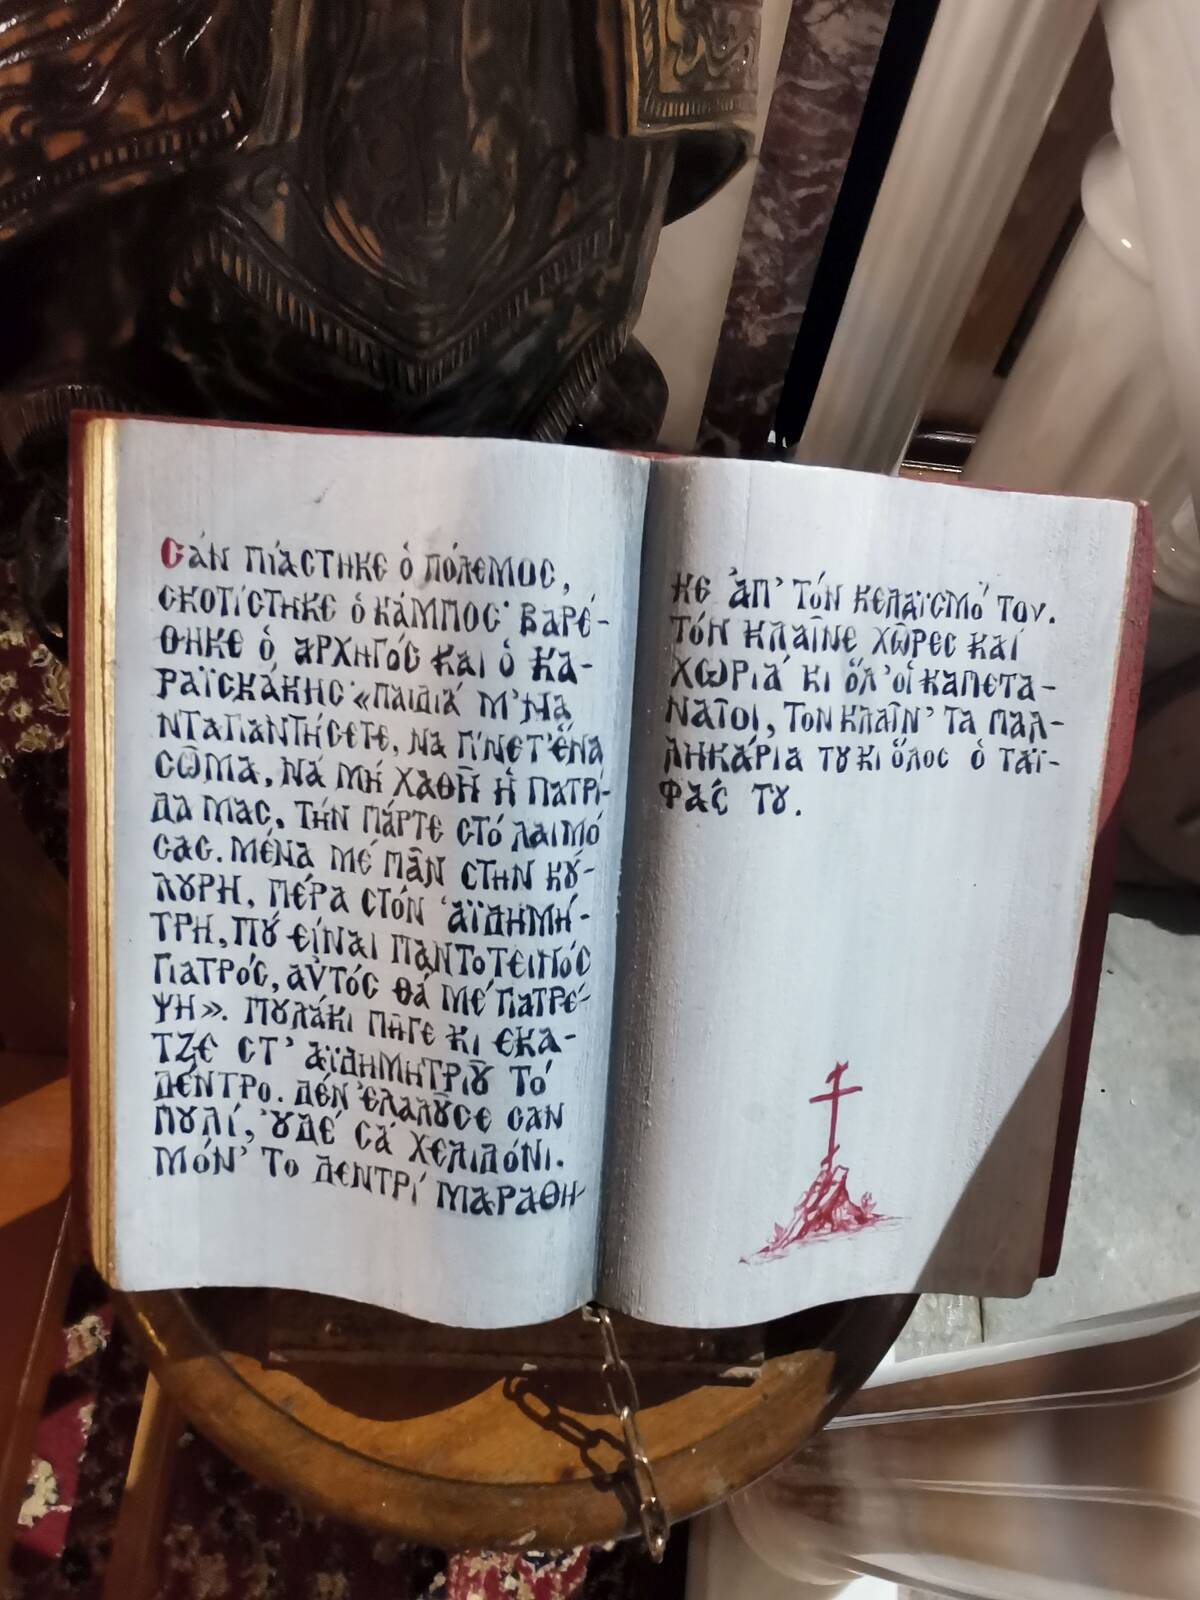 Σάν πιάστηκε ὁ πόλεμος,
σκοτίστηκε ὁ κάμπος· βαρέ-
θηκε ὁ ἀρχηγός και ὁ Κα-
ραϊσκάκης· «παιδιά μ' να
νταγιαντήσετε, να γίνετ' ἕνα
σῶμα, νά μή χαθῆ ἡ πατρί-
δα μας, τήν πάρτε στό λαιμό
σας. Μένα μέ πᾶν στην Κού-
λουρη, πέρα στόν Ἀϊδημή-
τρη, πού εἶναι παντοτεινός
γιατρός, αὐτός θά μέ γιατρέ-
ψη». Πουλάκι πῆγε κι εκα-
τζε στ' Ἀϊδημητριοῦ τό
δέντρο. Δέν ἐλαλοῦσε σαν
πουλί, οὐδέ σά χελιδόνι.
Μόν' το δεντρί μαραθη-
κε ἀπ' τόν κελαϊσμό του.
Τόν κλαῖνε χῶρες καί
χωριά κι ὅλ' οἱ καπετα-
ναῖοι, τον κλαῖν' τα παλ-
ληκάρια του κι ὅλος ὁ ταϊ-
φάς του.